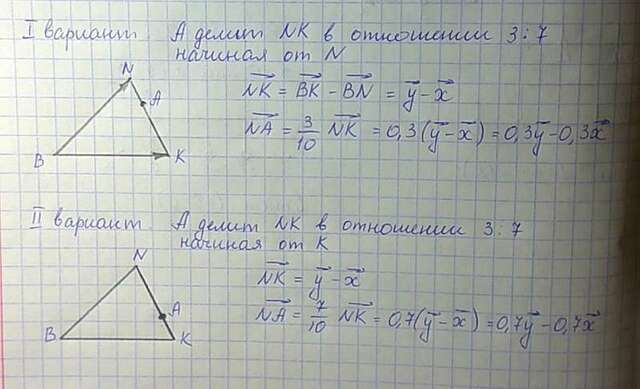 I вариант A делит NK в отношении 3:7
начиная от N
N
A
B
K
NK⃗ = BK⃗ - BN⃗ = y⃗ - x⃗
NA⃗ = 3/10 NK⃗ = 0,3(y⃗ - x⃗) = 0,3y⃗ - 0,3x⃗
II вариант A делит NK в отношении 3:7
начиная от K
N
A
B
K
NK⃗ = y⃗ - x⃗
NA⃗ = 7/10 NK⃗ = 0,7(y⃗ - x⃗) = 0,7y⃗ - 0,7x⃗